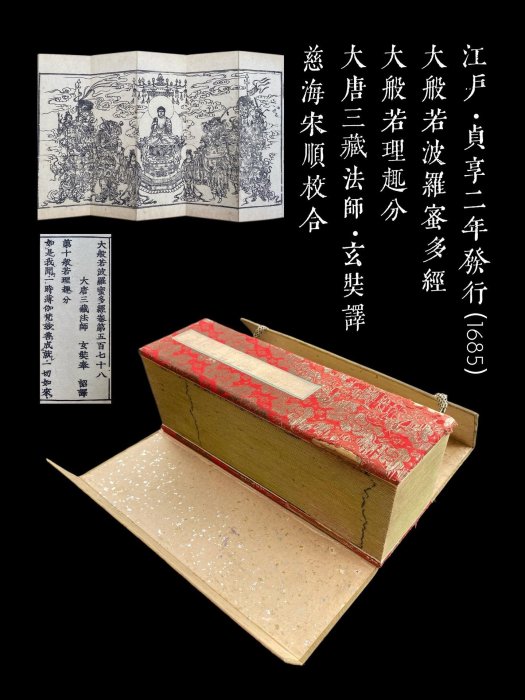 江戶·貞享二年發行(1685)
大般若波羅蜜多經
大般若理趣分
大唐三藏法師·玄奘譯
慈海宋順校合
大般若波羅蜜多經卷第五百七十八
大唐三藏法師 玄奘奉 詔譯
第十般若理趣分
如是我聞一時薄伽梵妙善成就一切如來